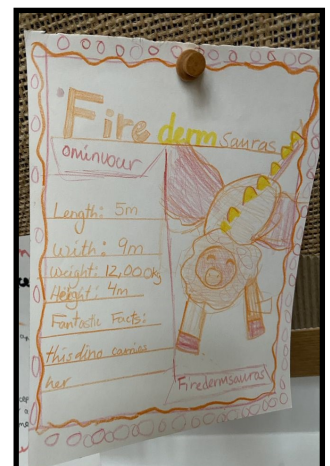 Firedermsauras
ominvour
Length: 5m
with: 9m
Weight: 12,000kg
Height: 4m
Fantastic Facts:
this dino carries
her
Firedermsauras